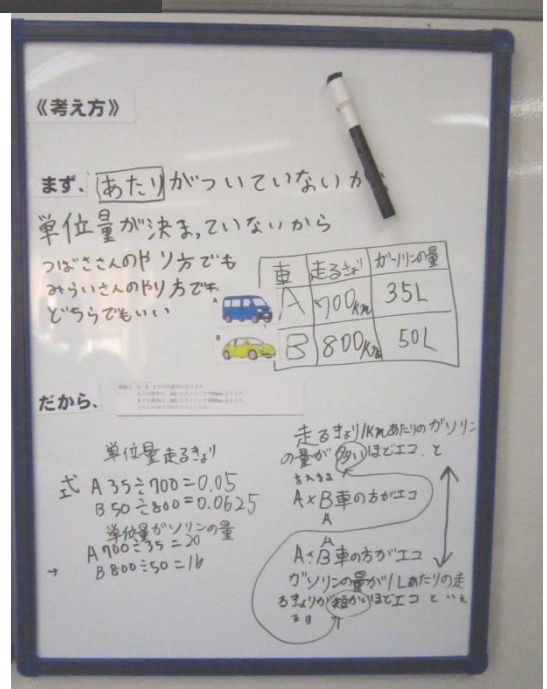 《考え方》
まず、あたりがついていないか
単位量が決まっていないから
つばささんのやり方でも
みらいさんのやり方でも
どちらでもいい
車 走るきょり ガソリンの量
A A 700km 35L
B B 800km 50L
だから、
単位量走るきょり
式 A 35÷700=0.05
B 50÷800=0.0625
単位量ガソリンの量
A 700÷35=20
→ B 800÷50=16
走るきょり1kmあたりのガソリン
の量が多いほどエコ と
いえます
A×B車の方がエコ
A
A×B車の方がエコ
ガソリンの量が1Lあたりの走
るきょりが短かいほどエコ といえ
ます